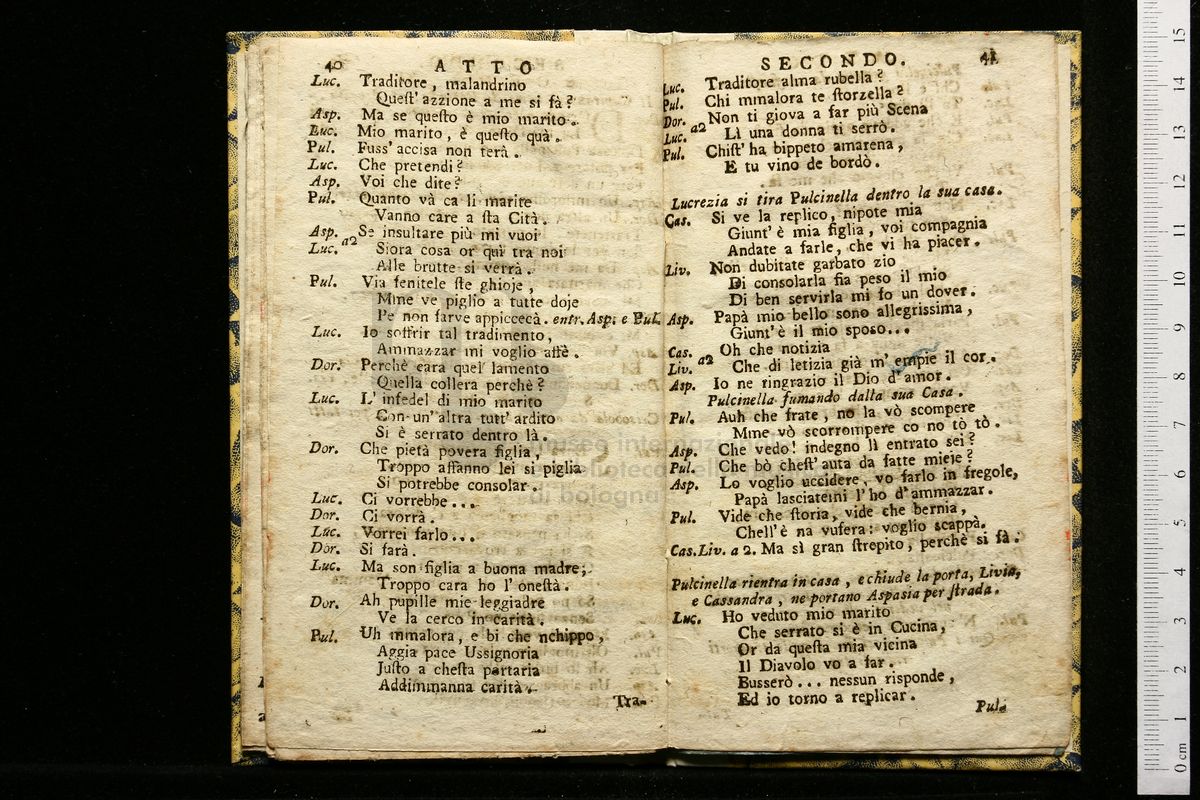 40 ATTO
Luc. Traditore, malandrino
Quest' azzione a me si fà?
Asp. Ma se questo è mio marito.
Luc. Mio marito, è questo quà.
Pul. Fuss' accisa non terà.
Luc. Che pretendi?
Asp. Voi che dite?
Pul. Quanto và ca li marite
Vanno care a sta Cità.
Asp. Se insultare più mi vuoi
Luc. a2 Siora cosa or quì tra noi
Alle brutte si verrà.
Pul. Via fenitele ste ghioje,
Mme ve piglio a tutte doje
Pe non farve appiccecà. entr. Asp. e Pul.
Luc. Io soffrir tal tradimento,
Ammazzar mi voglio affè.
Dor. Perchè cara quel lamento
Quella collera perchè?
Luc. L' infedel di mio marito
Con un' altra tutt' ardito
Si è serrato dentro là.
Dor. Che pietà povera figlia,
Troppo affanno lei si piglia
Si potrebbe consolar.
Luc. Ci vorrebbe...
Dor. Ci vorrà.
Luc. Vorrei farlo...
Dor. Si farà.
Luc. Ma son figlia a buona madre;
Troppo cara ho l' onestà.
Dor. Ah pupille mie leggiadre
Ve la cerco in carità.
Pul. Uh mmalora, e bi che nchippo,
Aggia pace Ussignoria
Justo a chesta partaria
Addimmanna carità.
Tra-
SECONDO. 41
Luc. Traditore alma rubella?
Pul. Chi mmalora te storzella?
Dor. Non ti giova a far più Scena
Luc. a2 Lì una donna ti serrò.
Pul. Chist' ha bippeto amarena,
E tu vino de bordò.
Lucrezia si tira Pulcinella dentro la sua casa.
Cas. Si ve la replico, nipote mia
Giunt' è mia figlia, voi compagnia
Andate a farle, che vi ha piacer.
Liv. Non dubitate garbato zio
Di consolarla fia peso il mio
Di ben servirla mi fo un dover.
Asp. Papà mio bello sono allegrissima,
Giunt' è il mio sposo...
Cas. Oh che notizia
Liv. a2 Che di letizia già m' empie il cor.
Asp. Io ne ringrazio il Dio d' amor.
Pulcinella fumando dalla sua Casa.
Pul. Auh che frate, no la vò scompere
Mme vò scorrompere co no tò tò.
Asp. Che vedo! indegno lì entrato sei?
Pul. Che bò chest' auta da fatte mieie?
Asp. Lo voglio uccidere, vo farlo in fregole,
Papà lasciatemi l' ho d' ammazzar.
Pul. Vide che storia, vide che bernia,
Chell' è na vufera: voglio scappà.
Cas. Liv. a 2. Ma sì gran strepito, perchè si fà.
Pulcinella rientra in casa, e chiude la porta, Livia,
e Cassandra, ne portano Aspasia per strada.
Luc. Ho veduto mio marito
Che serrato si è in Cucina,
Or da questa mia vicina
Il Diavolo vo a far.
Busserò... nessun risponde,
Ed io torno a replicar.
Pul.